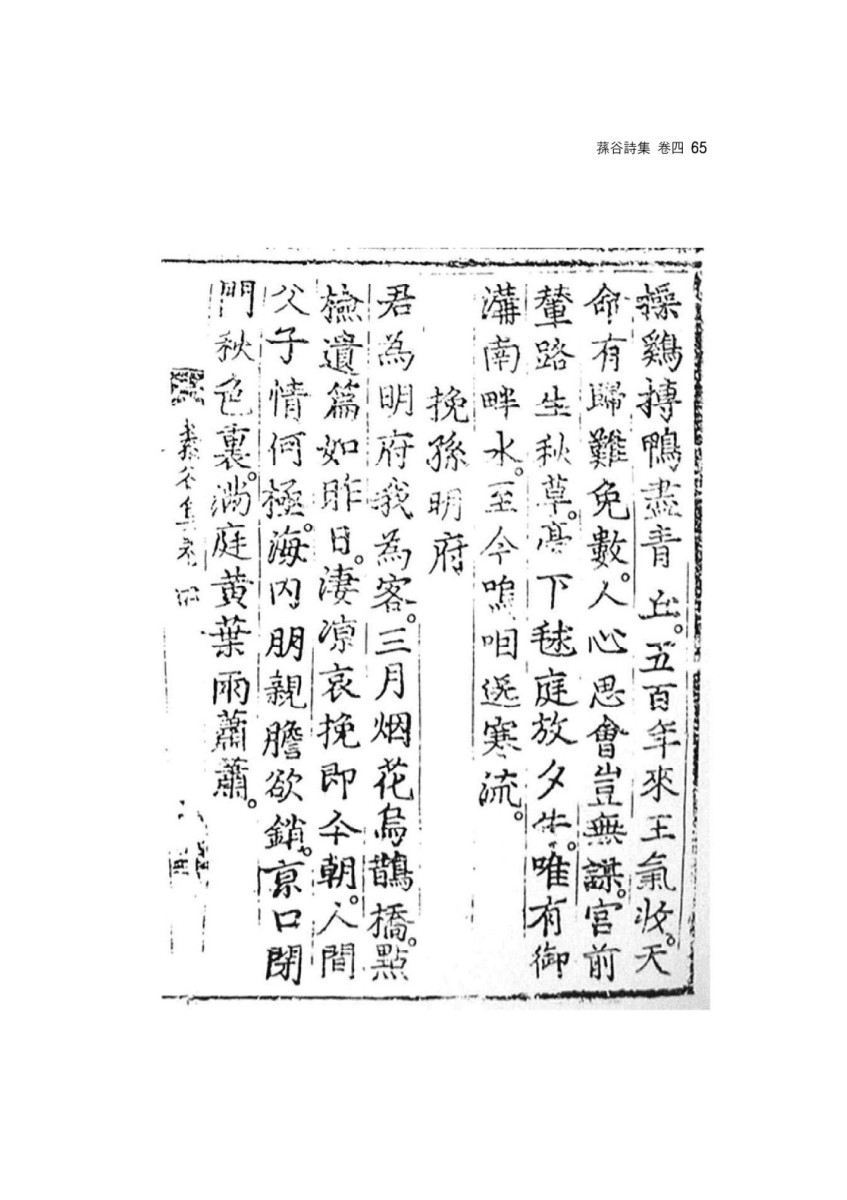 蓀谷詩集 卷四 65
操鷄搏鴨盡靑丘。五百年來王氣收。天
命有歸難免數。人心思會豈無謀。宮前
輦路生秋草。亭下毬庭放夕牛。唯有御
溝南畔水。至今嗚咽送寒流。
挽孫明府
君為明府我為客。三月烟花烏鵲橋。點
檢遺篇如昨日。凄凉哀挽即今朝。人間
父子情何極。海內朋親膽欲銷。京口閉
門秋色裏。滿庭黃葉雨蕭蕭。
蓀谷集卷四